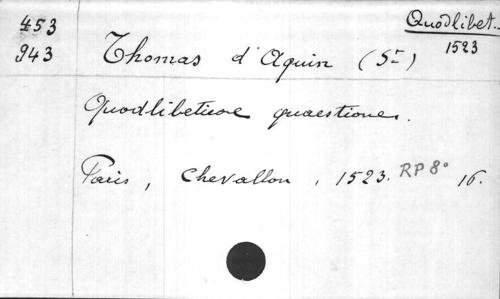 453
943
Quodlibet.
1523
Thomas d'Aquin (St)
Quodlibeticae quaestiones.
Paris, Chevallon, 1523. RP 8° 16.